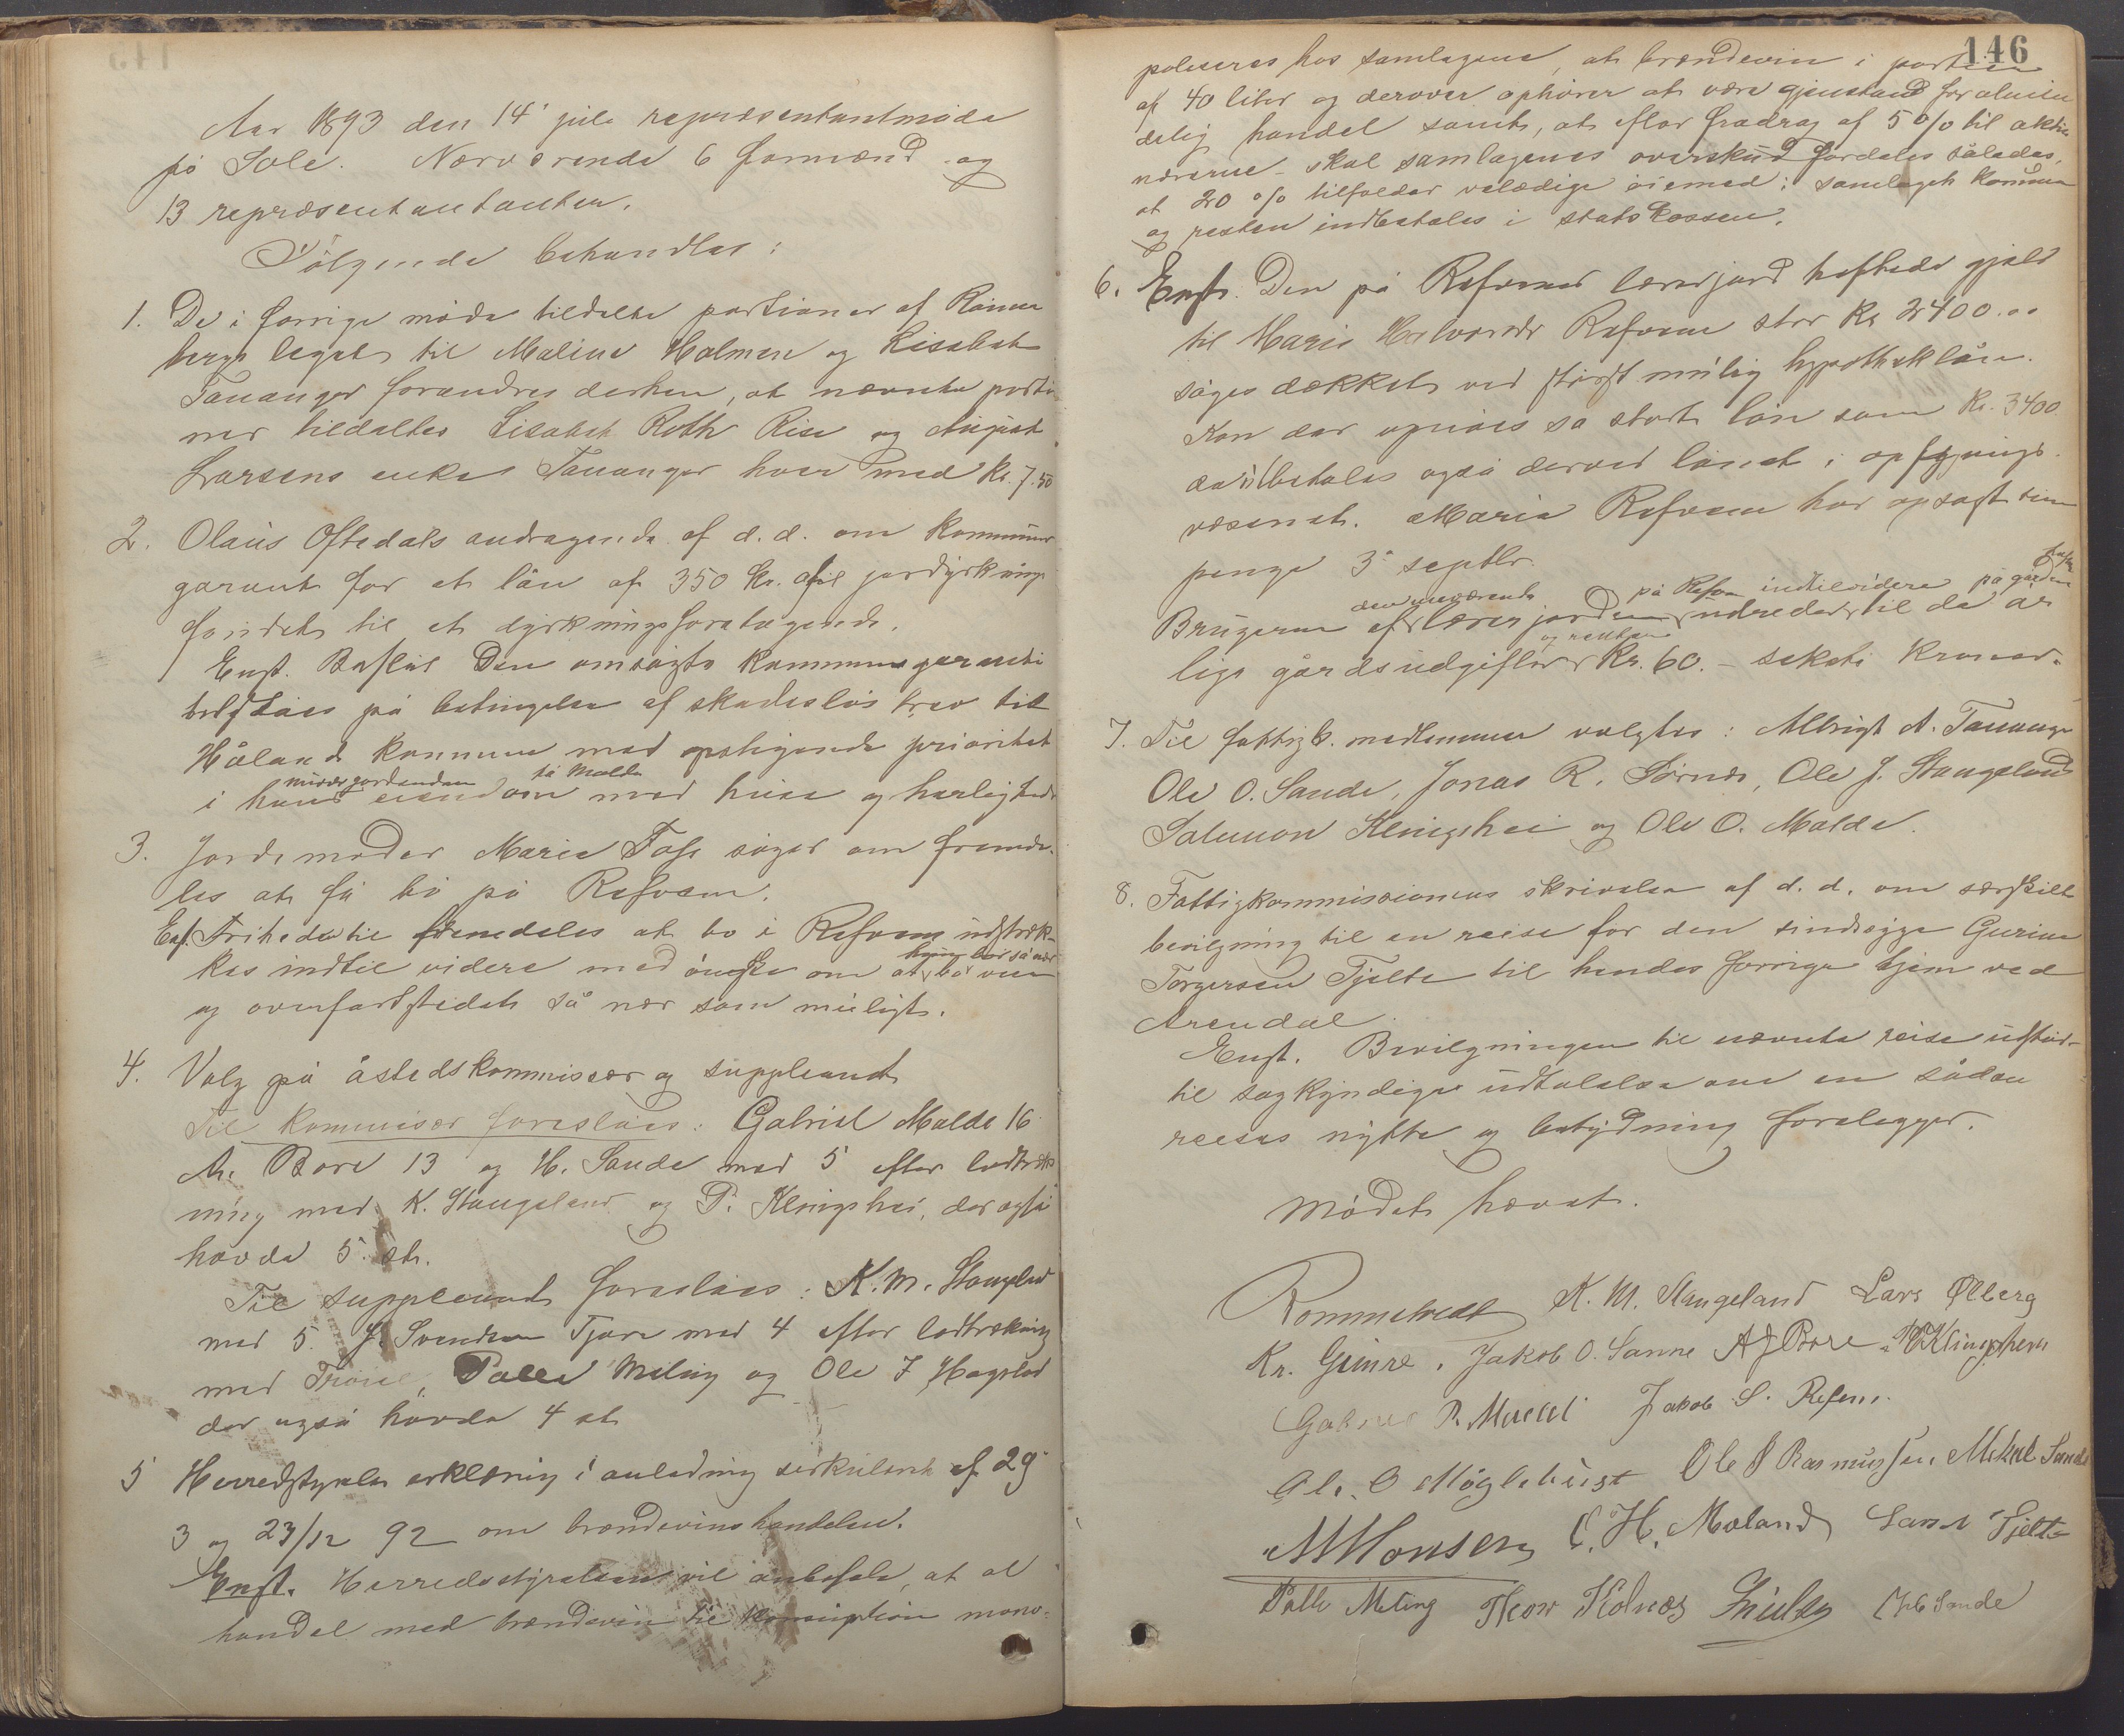 Aar 1893 den 14' juli repræsentantmøde
på Sole. Nærværende 6 formænd og
13 repræsentantanter.
Følgende behandles:
1. De i forrige møde tildelte portioner af
bergs legat til Maline Holmen og Lisabet
Tananger forandres derhen, at nævnte portio
ner tildeltes Lisabet Roth Risa og August
Larsens enke Tananger hver med Kr. 7.50
2. Olaus Oftedals andragende af d. d. om kommune
garanti for et lån af 350 Kr. af jordyrknings
fondet til et dyrkningsforetagende.
Enst. Beslut. Den omsøgte kommunegaranti
tilståes på betingelse af skadesløs brev til
Hålands kommune med opstigende prioritet
i hans eiendom på Malde med huse og herligheder
3. Jordemoder Marie Foss søger om fremde-
les at få bo på Refsnes.
Enst. Friheden til fremdeles at bo i Refsnes udstræk-
kes indtil videre med ønske om at bo
og overfartstedet så nær som muligt.
4. Valg på åstedskommissær og suppleant
Til kommissær foreslåes: Gabriel Malde 16
A. Bore 13 og H. Sande med 5 efter lodtræk
ning med K. Stangeland og P. Klingshei, der også
havde 5 st.
Til suppleant foreslåes: K. M. Stangeland
med 5. J. Svendsen Tjora med 4 efter lodtrækning
med Palle Meling og Ole J Hagelad
der også havde 4 st
5 Herredstyrelsens erklæring i anledning sirkulære af 29
3 og 23/12 92 om brændevinshandelen.
Enst. Herredsstyrelsen vil anbefale, at al
handel med brændevin til konsumption mono-
146
poliseres hos samlagene, at brændevin i partier
af 40 liter og derover ophører at være gjenstand for almin
delig handel samt, at efter fradrag af 5 % til aktio
nærerne skal samlagenes overskud fordeles således,
at 20 % tilfalder veldædige øiemed i samlagets kommune
og resten indbetales i statskassen.
6. Enst. Den på Refsnes lærerjord heftede gjæld
til Maria Halvorsdr Refsnes stor Kr 2400.00
søges dækket ved størst mulig hypotheklån.
Kan der opnåes så stort lån som Kr. 3400
da indbetales også derved lånet i opfostrings
væsenet. Maria Refsnes har opsagt sine
penge 3' septbr.
den nuværende på Refsn indtilvidere på gården
Brugeren af lærerjorden udreder til de år
og renten
lige gårdsudgifter Kr. 60. – seksti kroner.
7. Til fattigk. medlemmer valgtes: Albrigt A. Tananger
Ole O. Sande, Jonas R. Sørnes, Ole J. Stangeland
Salomon Klingshei og Ole O. Malde.
8. Fattigkommissionens skrivelse af d. d. om særskilt
bevilgning til en reise for den sindssyge Gurine
Torgersen Tjelta til hendes forrige hjem ved
Arendal.
Enst. Bevilgningen til nævnte reise udstår
til sagkyndiges udtalelse om en sådan
reises nytte og betydning forelægger.
Mødet hævet.
Rommetvedt K. M. Stangeland Lars Ølberg
Kr. Gimre. Jakob O. Sømme A J Bore P Klingshem
Gabriel P. Malde Jakob S. Refsnes.
Ole O Møglebust Ole J Rasmussen Mikal Sande
M Monsen C. H. Meland Lars Tjelta
Palle Meling Thore Kolnes H Sande